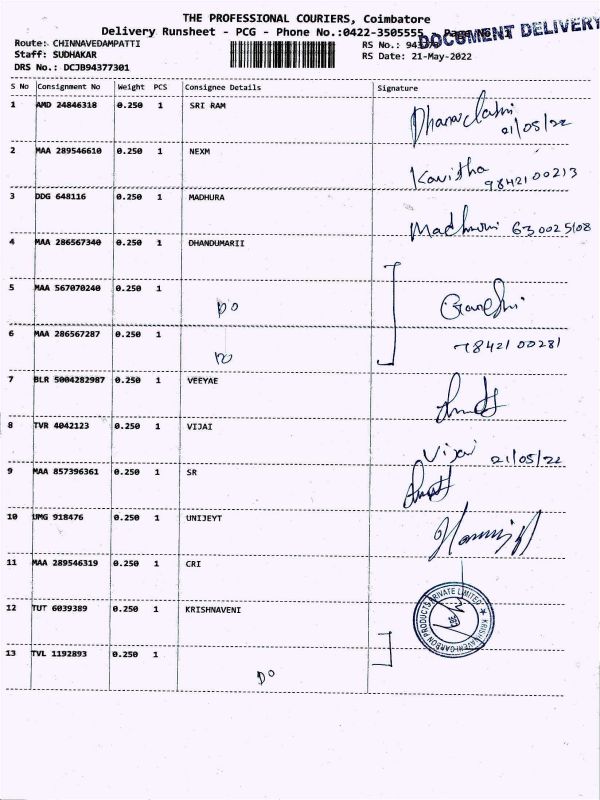 THE PROFESSIONAL COURIERS, Coimbatore
Delivery Runsheet - PCG - Phone No.:0422-3505555
DOCUMENT DELIVERY
Route: CHINNAVEDAMPATTI
Staff: SUDHAKAR RS Date: 21-May-2022
DRS No.: DCJB94377301
S No Consignment No Weight PCS Consignee Details Signature
1 AMD 24846318 0.250 1 SRI RAM
21/05/22
2 MAA 289546610 0.250 1 NEXM Kavitha
9842100213
3 DDG 648116 0.250 1 MADHURA
4 MAA 286567340 0.250 1 DHANDUMARII
5 MAA 567070240 0.250 1
DO
6 MAA 286567287 0.250 1 7842100281
DO
7 BLR 5004282987 0.250 1 VEEYAE
8 TVR 4042123 0.250 1 VIJAI
Vijai 21/05/22
9 MAA 857396361 0.250 1 SR
10 UMG 918476 0.250 1 UNIJEYT
11 MAA 289546319 0.250 1 CRI
12 TUT 6039389 0.250 1 KRISHNAVENI
KRISHNAVENI CARBON PRODUCTS PRIVATE LIMITED
13 TVL 1192893 0.250 1
DO